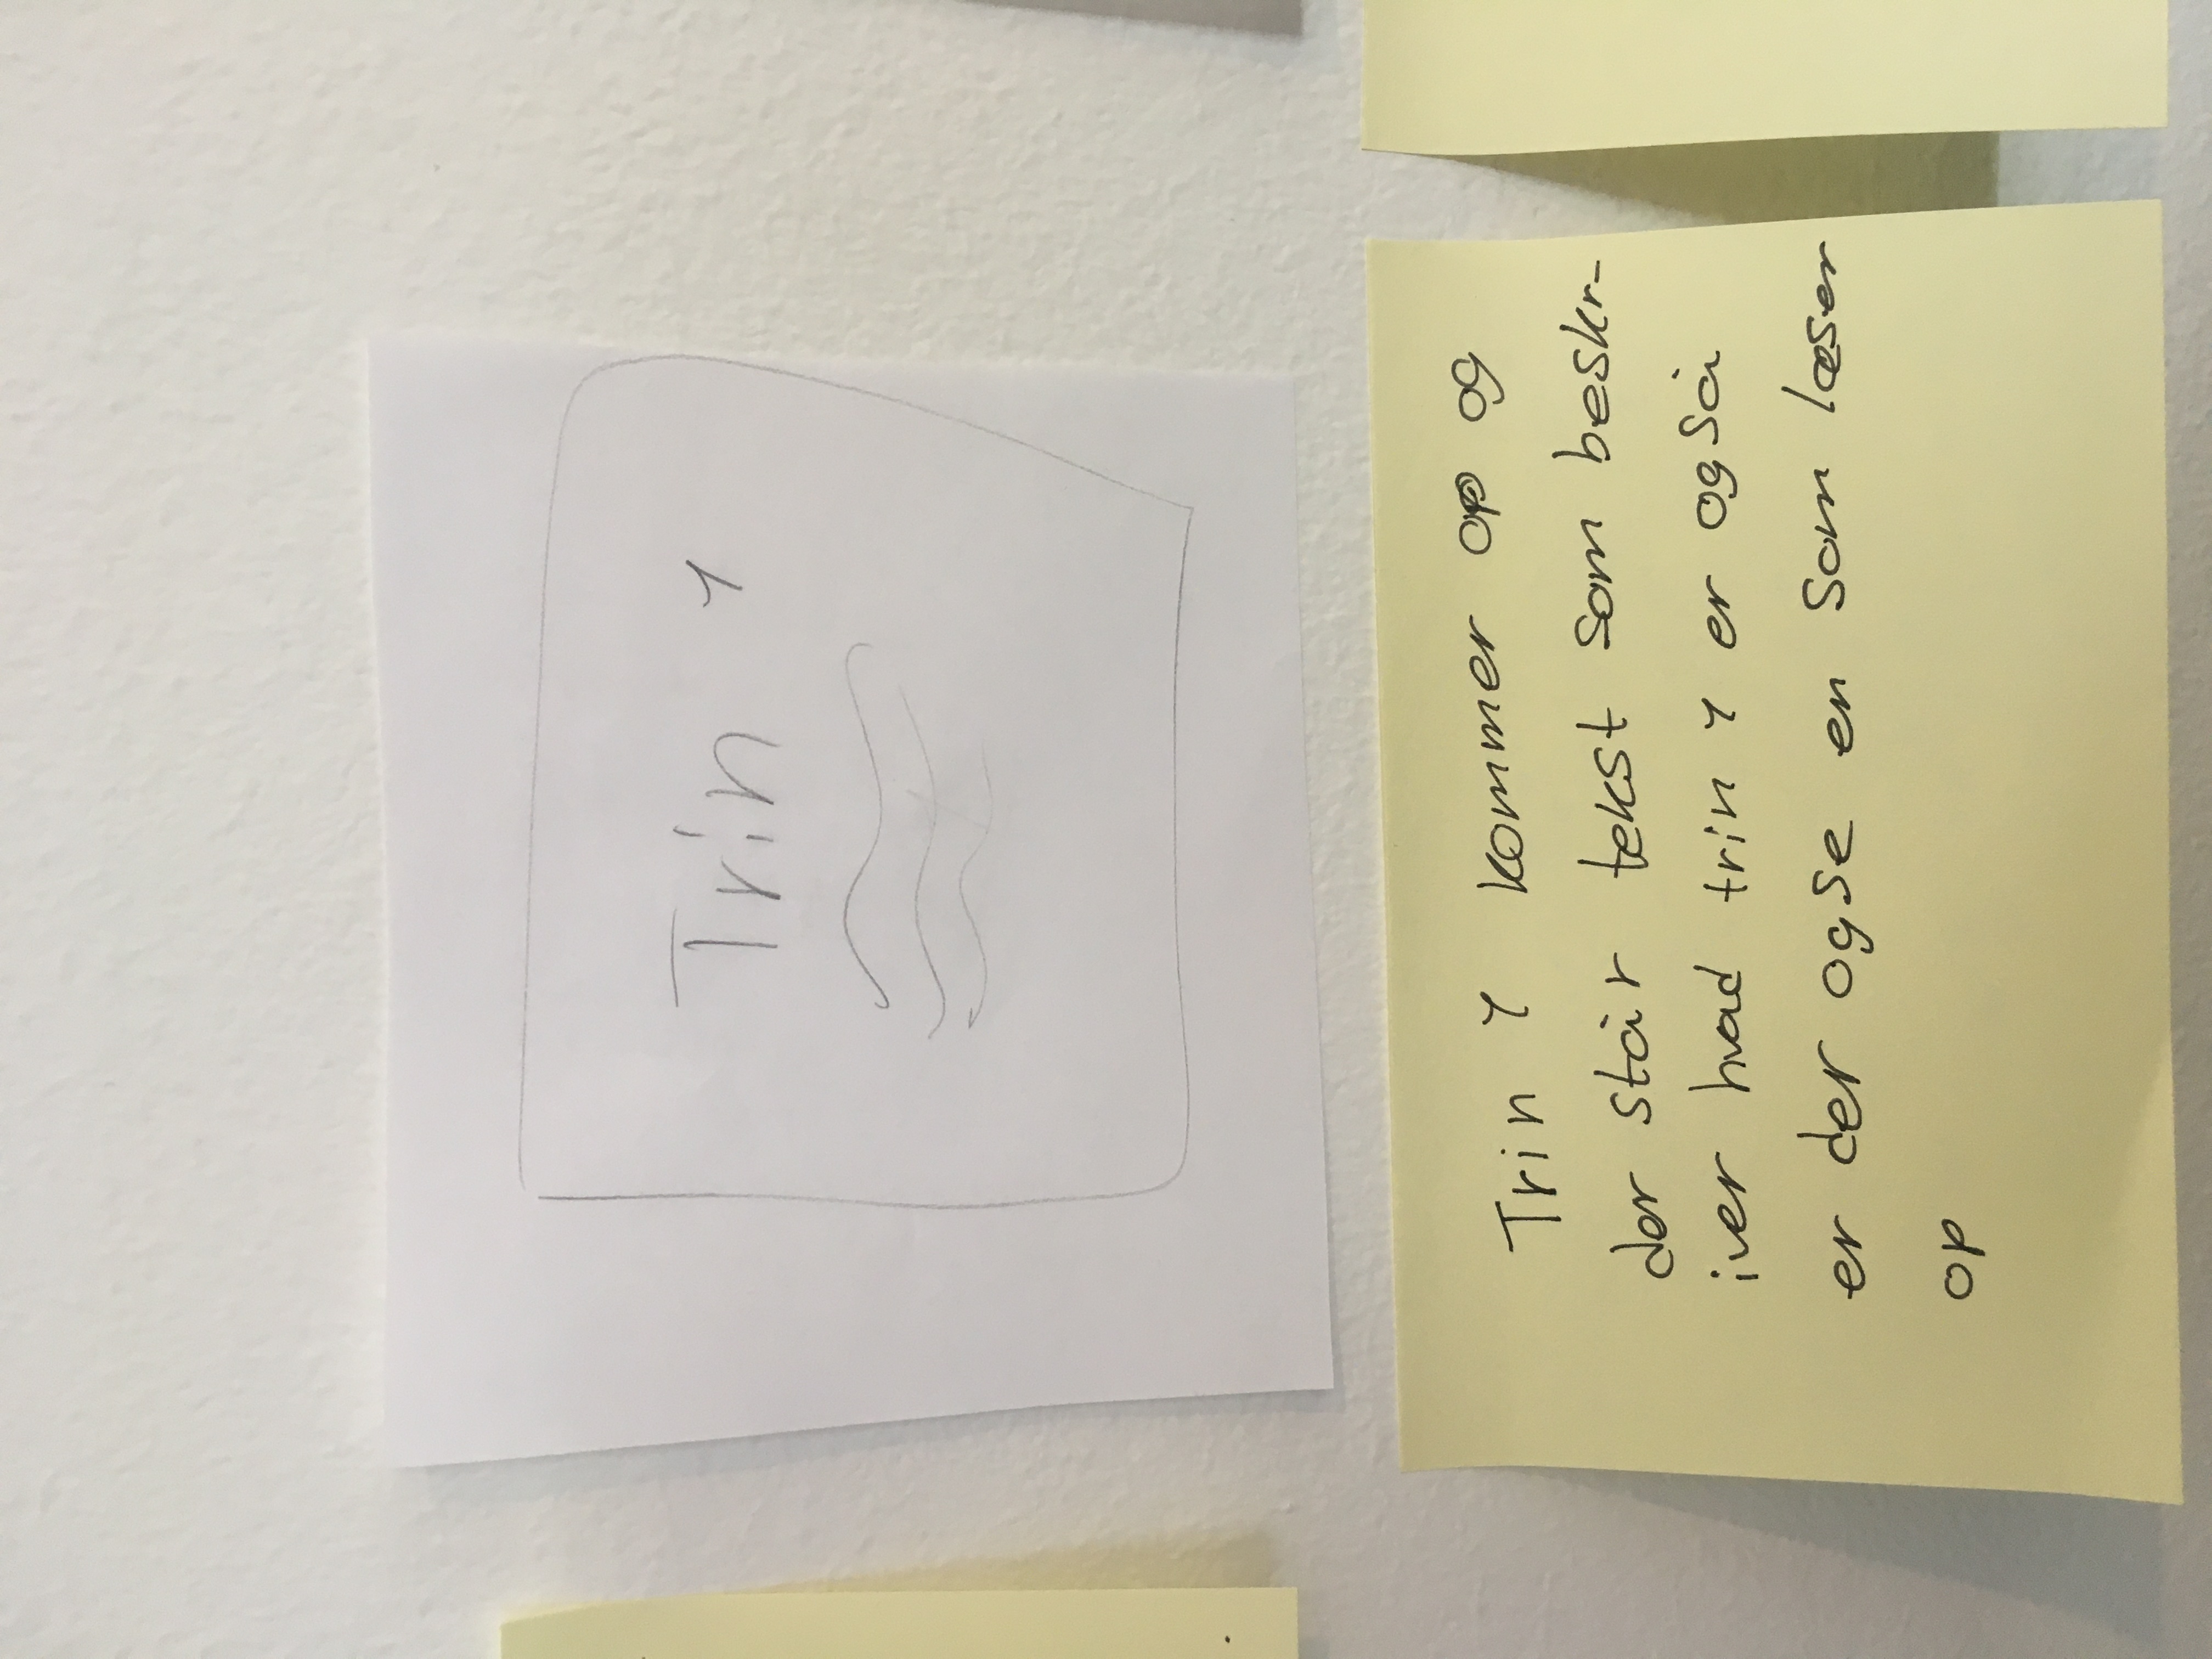 Trin 1
Trin 1 kommer op og
der står tekst som beskr-
iver hvad trin 1 er også
er der ogse en som læser
op